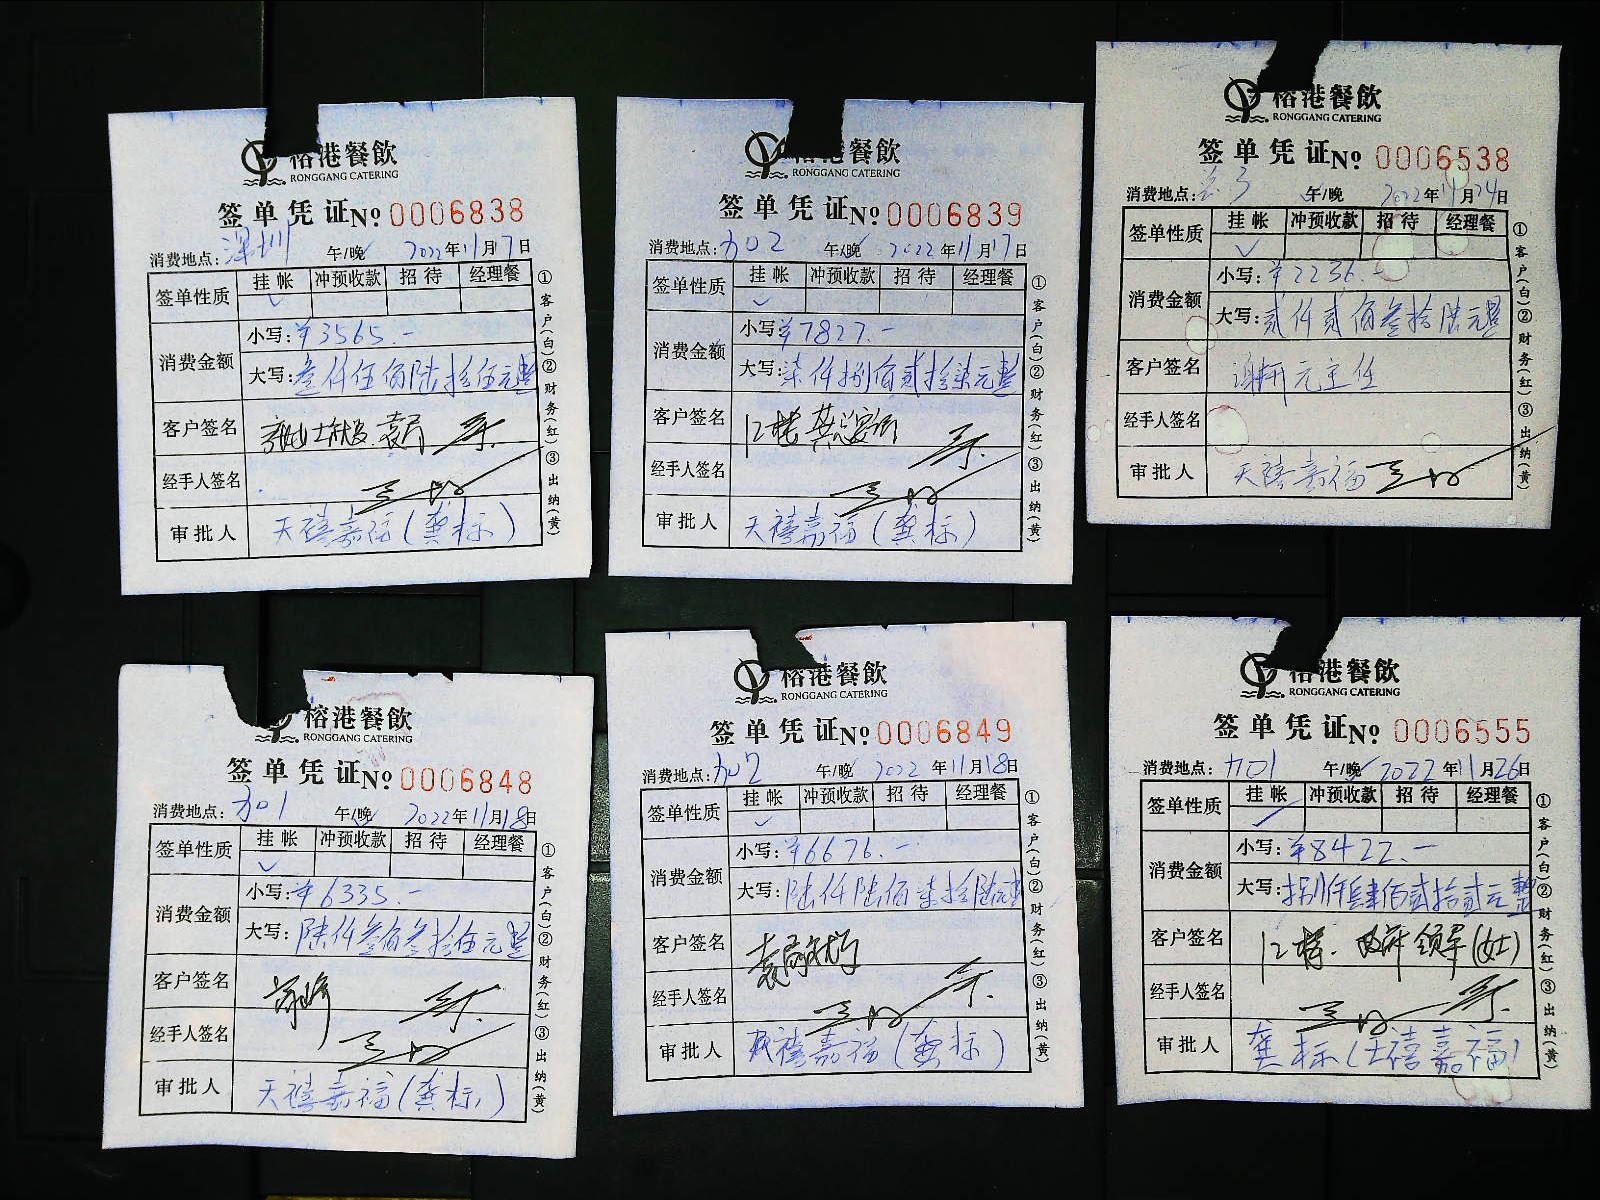 榕港餐飲
RONGGANG CATERING
签单凭证№ 0006838
消费地点: 深圳 午/晚 2022年11月7日
签单性质 挂帐 冲预收款 招待 经理餐
✓
消费金额
小写: ¥3565.-
大写: 叁仟伍佰陆拾伍元整
客户签名
经手人签名
审批人 天禧嘉福(龚标)
①客户(白)②财务(红)③出纳(黄)
榕港餐飲
RONGGANG CATERING
签单凭证№ 0006839
消费地点: 加02 午/晚 2022年11月17日
签单性质 挂帐 冲预收款 招待 经理餐
✓
消费金额
小写: ¥7827.-
大写: 柒仟捌佰贰拾柒元整
客户签名 江楼
经手人签名
审批人 天禧嘉福(龚标)
①客户(白)②财务(红)③出纳(黄)
榕港餐飲
RONGGANG CATERING
签单凭证№ 0006538
消费地点: 午/晚 2022年11月24日
签单性质 挂帐 冲预收款 招待 经理餐
✓
消费金额
小写: ¥2236.-
大写: 贰仟贰佰叁拾陆元整
客户签名 谢开元主任
经手人签名
审批人 天禧嘉福
①客户(白)②财务(红)③出纳(黄)
榕港餐飲
RONGGANG CATERING
签单凭证№ 0006848
消费地点: 加01 午/晚 2022年11月18日
签单性质 挂帐 冲预收款 招待 经理餐
✓
消费金额
小写: ¥6335.-
大写: 陆仟叁佰叁拾伍元整
客户签名
经手人签名
审批人 天禧嘉福(龚标)
①客户(白)②财务(红)③出纳(黄)
榕港餐飲
RONGGANG CATERING
签单凭证№ 0006849
消费地点: 加02 午/晚 2022年11月18日
签单性质 挂帐 冲预收款 招待 经理餐
✓
消费金额
小写: ¥6676.-
大写: 陆仟陆佰柒拾陆元整
客户签名
经手人签名
审批人 天禧嘉福(龚标)
①客户(白)②财务(红)③出纳(黄)
榕港餐飲
RONGGANG CATERING
签单凭证№ 0006555
消费地点: 加01 午/晚 2022年11月26日
签单性质 挂帐 冲预收款 招待 经理餐
✓
消费金额
小写: ¥8422.-
大写: 捌仟肆佰贰拾贰元整
客户签名 江楼. 领导(女士)
经手人签名
审批人 龚标(天禧嘉福)
①客户(白)②财务(红)③出纳(黄)